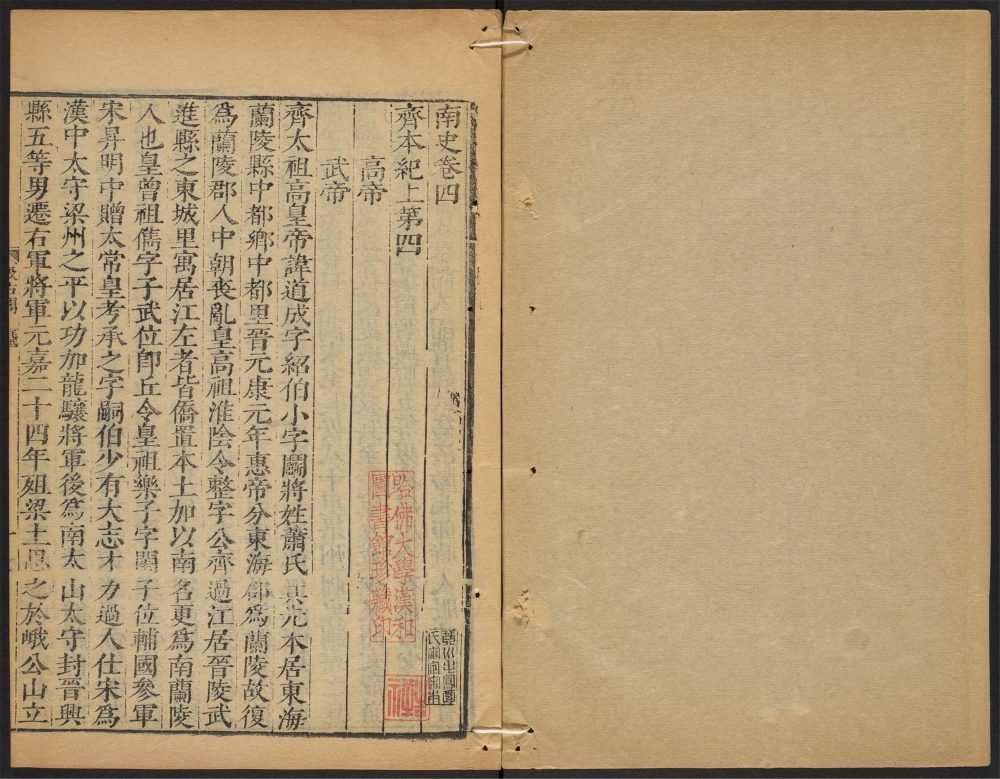 南史卷四
齊本紀上第四
高帝
武帝
齊太祖高皇帝諱道成字紹伯小字鬭將姓蕭氏其先本居東海
蘭陵縣中都鄉中都里晉元康元年惠帝分東海郡爲蘭陵故復
爲蘭陵郡人中朝喪亂皇高祖淮陰令整字公齊過江居晉陵武
進縣之東城里寓居江左者皆僑置本土加以南名更爲南蘭陵
人也皇曾祖儁字子武位卽丘令皇祖樂子字閨子位輔國參軍
宋昇明中贈太常皇考承之字嗣伯少有大志才力過人仕宋爲
漢中太守梁州之平以功加龍驤將軍後爲南太山太守封晉興
縣五等男遷右軍將軍元嘉二十四年殂梁土思之於峨公山立
哈佛大學漢和
圖書館珍藏印